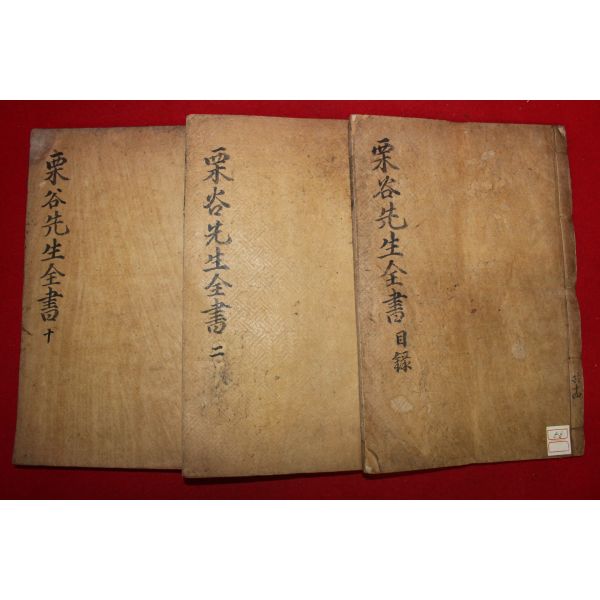 栗谷先生全書 目錄
栗谷先生全書 二
栗谷先生全書 十